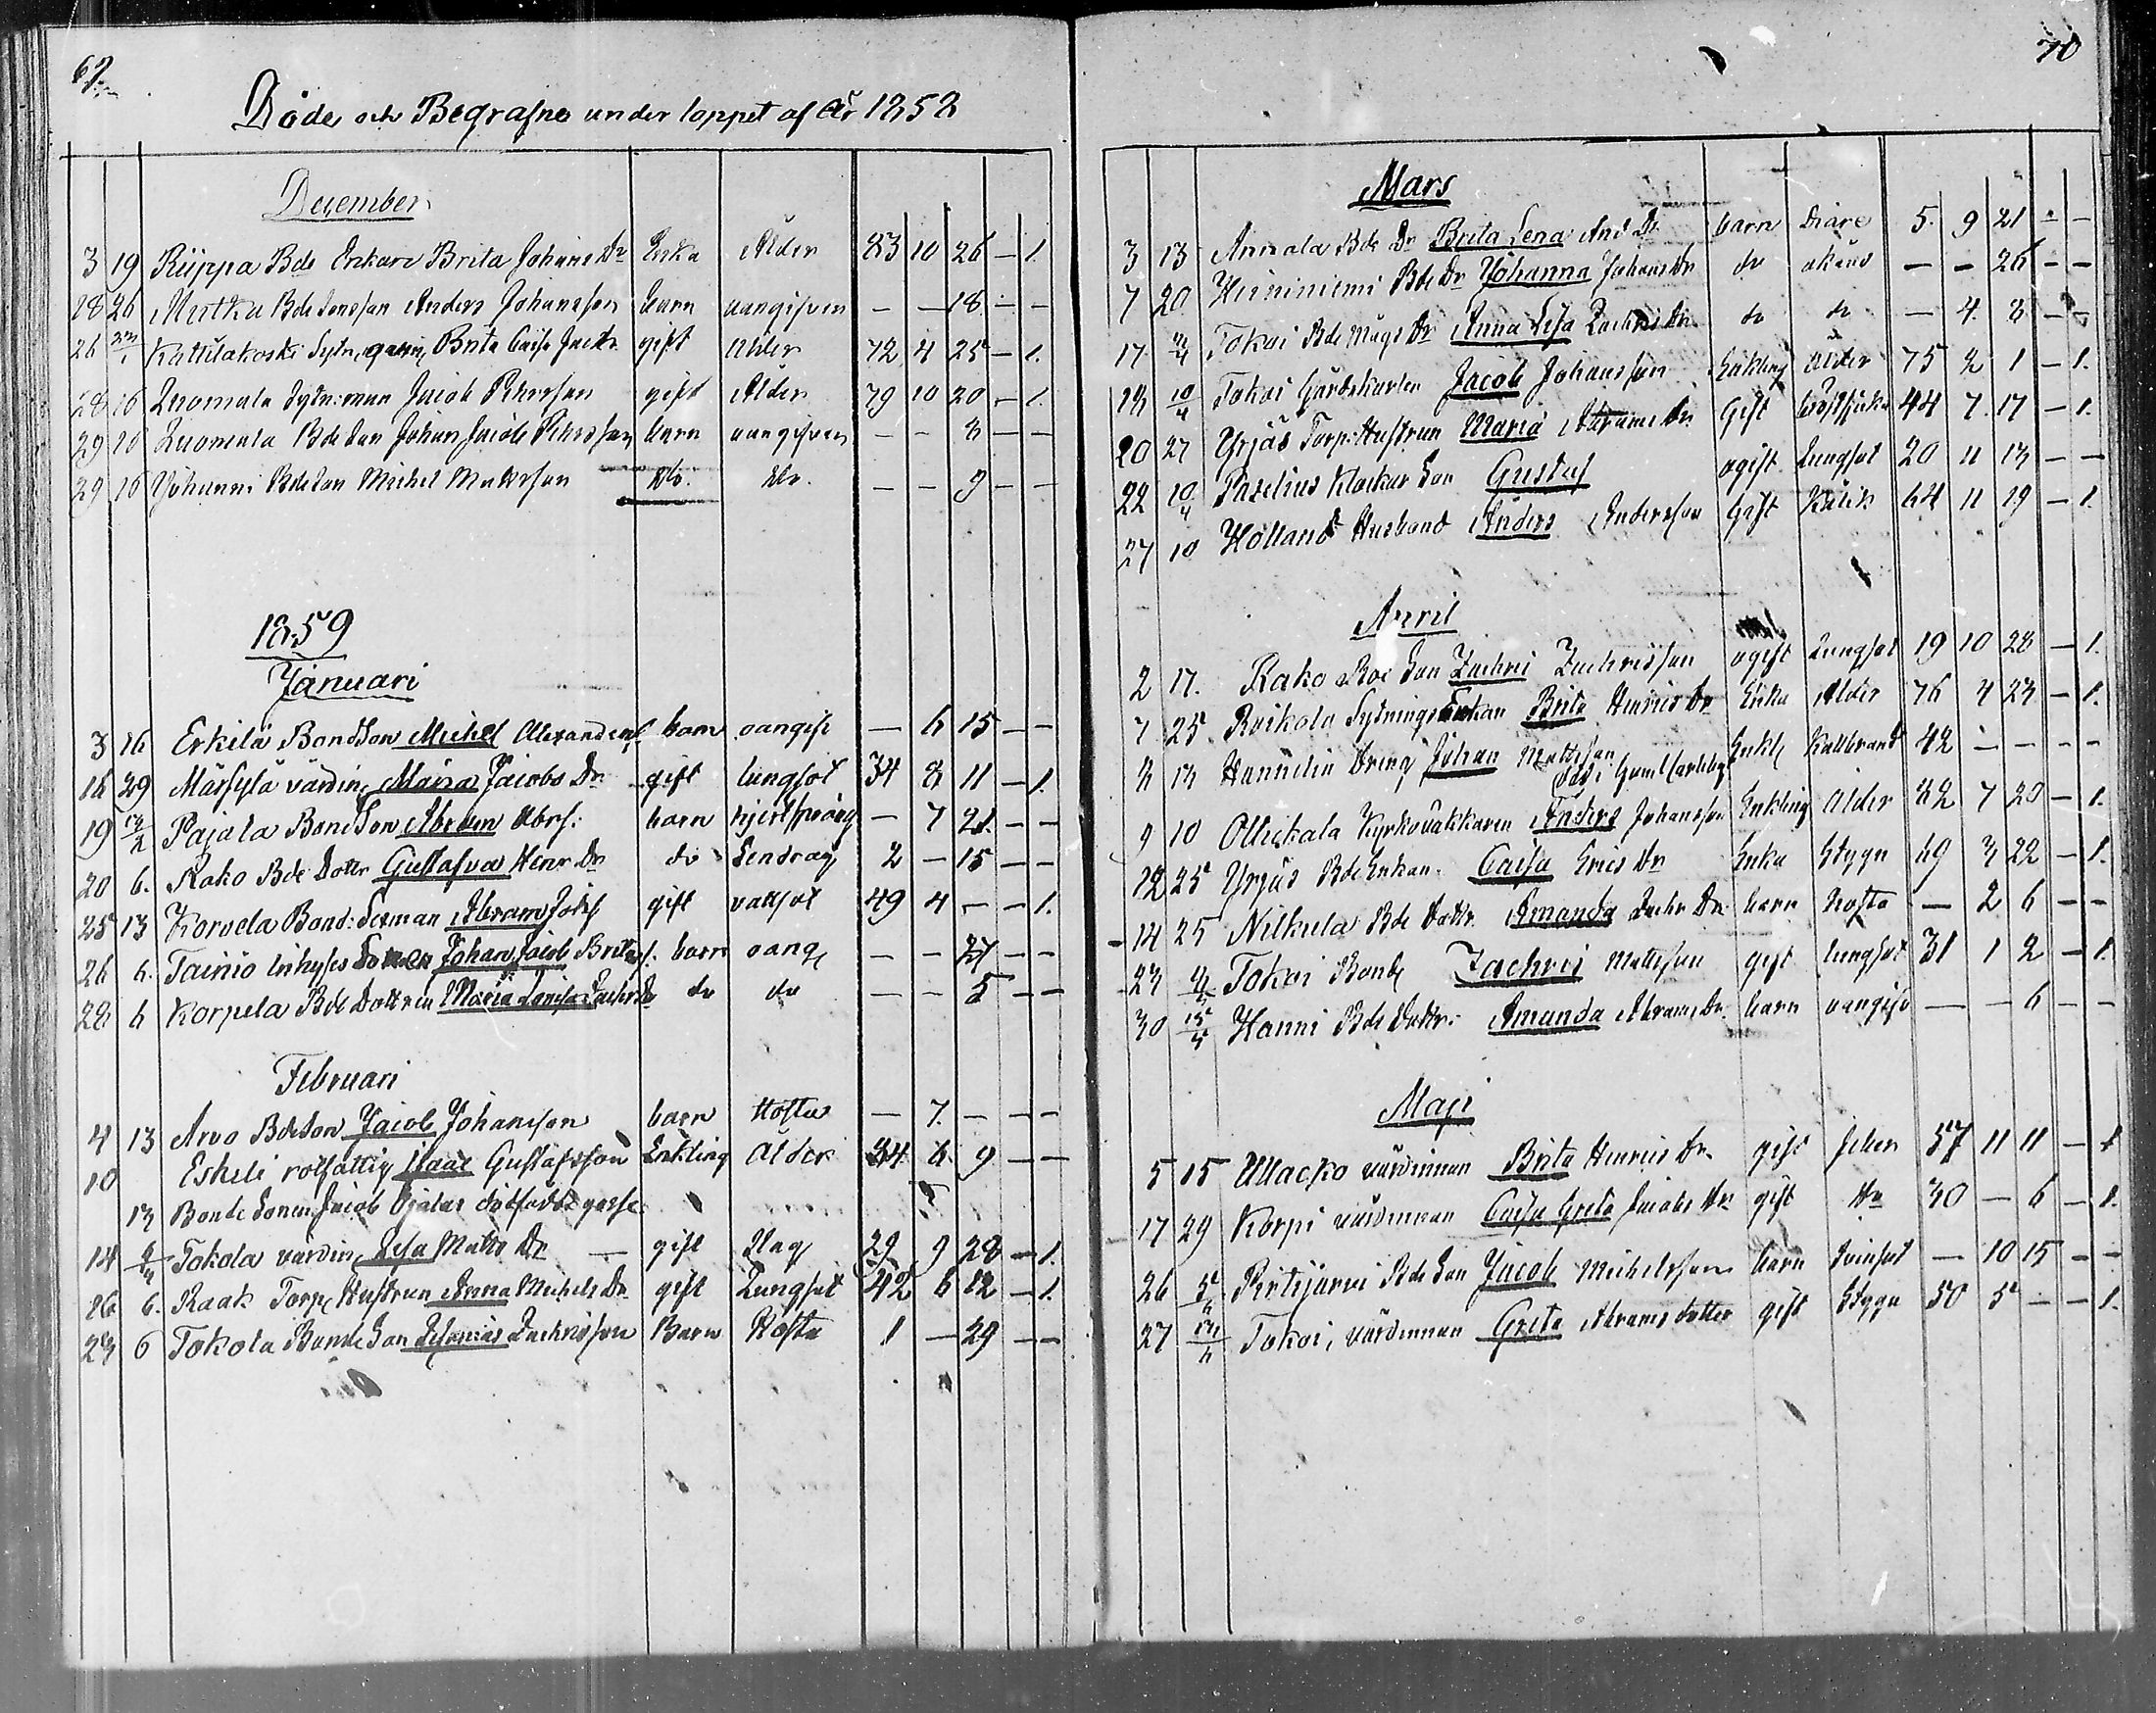 69.
Döde och Begrafne under loppet af År 1858
December
3 19 Riippa Bde Enkan Brita Johans Dr Enka Ålder 83 10 26 — 1.
18 26 Mutka Bde Sonsson Anders Johansson barn oangifven — — 18 — —
26 Kattilakoski Sytn. Brita Caisa gift Ålder 72 4 25 — 1.
28 16 Luomala Sytn:man Jacob Pehrsson gift Ålder 79 10 20 — 1.
29 16 Luomala Bde Son Johan Jacob Pehrsson barn oangifven — — 8 — —
29 16 Johanni Bde Son Michel Mattsson do. do. — — 9 — —
1859
Januari
3 16 Erkilä BondSon Michel Alexanders. barn oangif — 6 15 — —
16 29 Märsylä värdin Maria Jacobs Dr gift lungsot 34 8 11 — 1.
19 13/2 Pajala BondSon Abram Abrs: barn hjertsprång — 7 21. — —
20 6. Rako Bde Dotter Gustafva Henr Dr do Sendrag 2 — 15 — —
25 13 Korvela Bond: Abram Josefs gift vattsot 49 4 — — 1.
26 6. Tainio Inhyses Sonen Johan Jacob Britas. barn oang — — 27 — —
28 6 Korpela Bde Dottren Maria Lovisa Zachrs Dr do do — — 5 — —
Februari
4 13 Arvo BdeSon Jacob Johansson barn Hosta — 7. — — —
10 Eskeli rotfattig Isaac Gustafsson Enkling Ålder 84 8 9 — —
13 Bonde Sonen Jacob Ojalas dödfödde gosse
14 Tokola värdin Lisa Matts Dr — gift Slag 29 9 28 — 1.
16 6. Raak Torp. Hustrun Anna Michels Dr gift Lungsot 42 6 12 — 1.
23 6 Tokola Bonde Son Zachrisson Barn Hosta 1 — 29 — —
70
Mars
3 13 Annala Bde Dr Brita Lena And Dr. barn Diare 5. 9 21 — —
7 20 Hirviniemi Bde Dr Johanna Johans Dr do okänd — — 26 — —
17 Tokoi Bde Mågs Dr Anna Lisa Zachris Dr. do do — 4. 8 — —
18 10/4 Tokoi Gårdskarlen Jacob Johansson Enkling Ålder 75 2 1 — 1.
20 27 Yrjäs Torp: Hustrun Maria Abrams Dr. Gift 44 7. 17 — 1.
22 10/4 Paselius Klockar Son Gustaf ogift Lungsot 20 11 13 — —
27 10 Holland Husband Anders Andersson Gift Kolik 64 11 19 — 1.
April
2 17. Rako Bde Son Zachris Zachrisson ogift Lungsot 19 10 28 — 1.
7 25 Raikola Sytnings Enkan Brita Henrics Dr Enka Ålder 76 4 23 — 1.
8 13 Hannila Dreng Johan Mattsson Enkl Kallbrand 42 — — — —
död i Gamlcarleby
9 10 Ollickala Kyrkoväkkaren Anders Johansson Enkling Ålder 82 7 20 — 1.
12 25 Yrjäs Bde Enkan. Caisa Erics Dr Enka Stygn 69 3 22 — 1.
14 25 Nikula Bde Dottr. Amanda Zachr Dr barn hosta — 2 6 — —
23 Tokoi Bonde Zachris Mattsson gift lungsot 31 1 2 — 1.
30 15/5 Hanni Bde Dottr: Amanda Abrams Dr. barn oangif — — 6 — —
Maji
5 15 Ullacko värdinnan Brita Henrics Dr. gift feber 57 11 11 — 1
17 29 Korpi värdinnan Caisa Greta Jacobs Dr gift do 30 — 6 — 1.
26 5/6 Pirttijärvi Bde Son Jacob Michelsson barn tvinsot — 10 15 — —
27 Tokoi, värdinnan Greta Abrams dotter gift Stygn 50 5 — — 1.